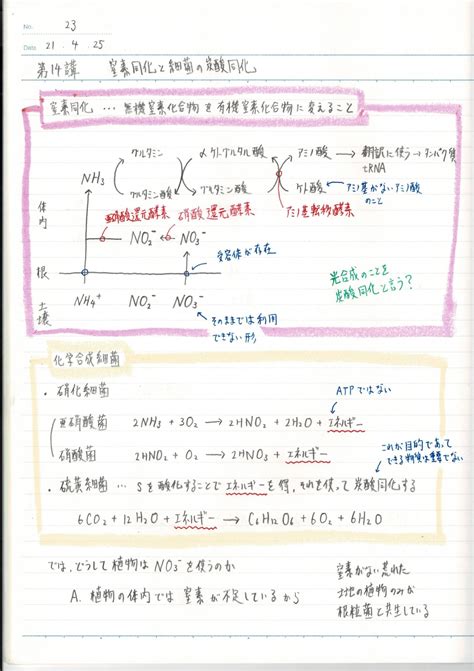 No. 23
Date 21・4・25
第14講 窒素同化と細菌の炭酸同化
窒素同化 … 無機窒素化合物を有機窒素化合物に変えること
グルタミン
αケトグルタル酸
アミノ酸 → 翻訳に使う → タンパク質
tRNA
NH3
グルタミン酸
グルタミン酸
ケト酸
アミノ基がないアミノ酸
のこと
亜硝酸還元酵素
硝酸還元酵素
アミノ基転移酵素
体内
NO2⁻
NO3⁻
受容体が存在
根
光合成のことを
炭酸同化と言う?
土壌
NH4⁺
NO2⁻
NO3⁻
そのままでは利用
できない形
化学合成細菌
・硝化細菌
ATPではない
亜硝酸菌 2NH3 + 3O2 → 2HNO2 + 2H2O + エネルギー
硝酸菌 2HNO2 + O2 → 2HNO3 + エネルギー
これが目的であって
できる物質は重要でない
・硫黄細菌 … Sを酸化することでエネルギーを得、それを使って炭酸同化する
6CO2 + 12H2O + エネルギー → C6H12O6 + 6O2 + 6H2O
では、どうして植物はNO3⁻を使うのか
A. 植物の体内では窒素が不足しているから
窒素がない荒れた
土地の植物のみが
根粒菌と共生している